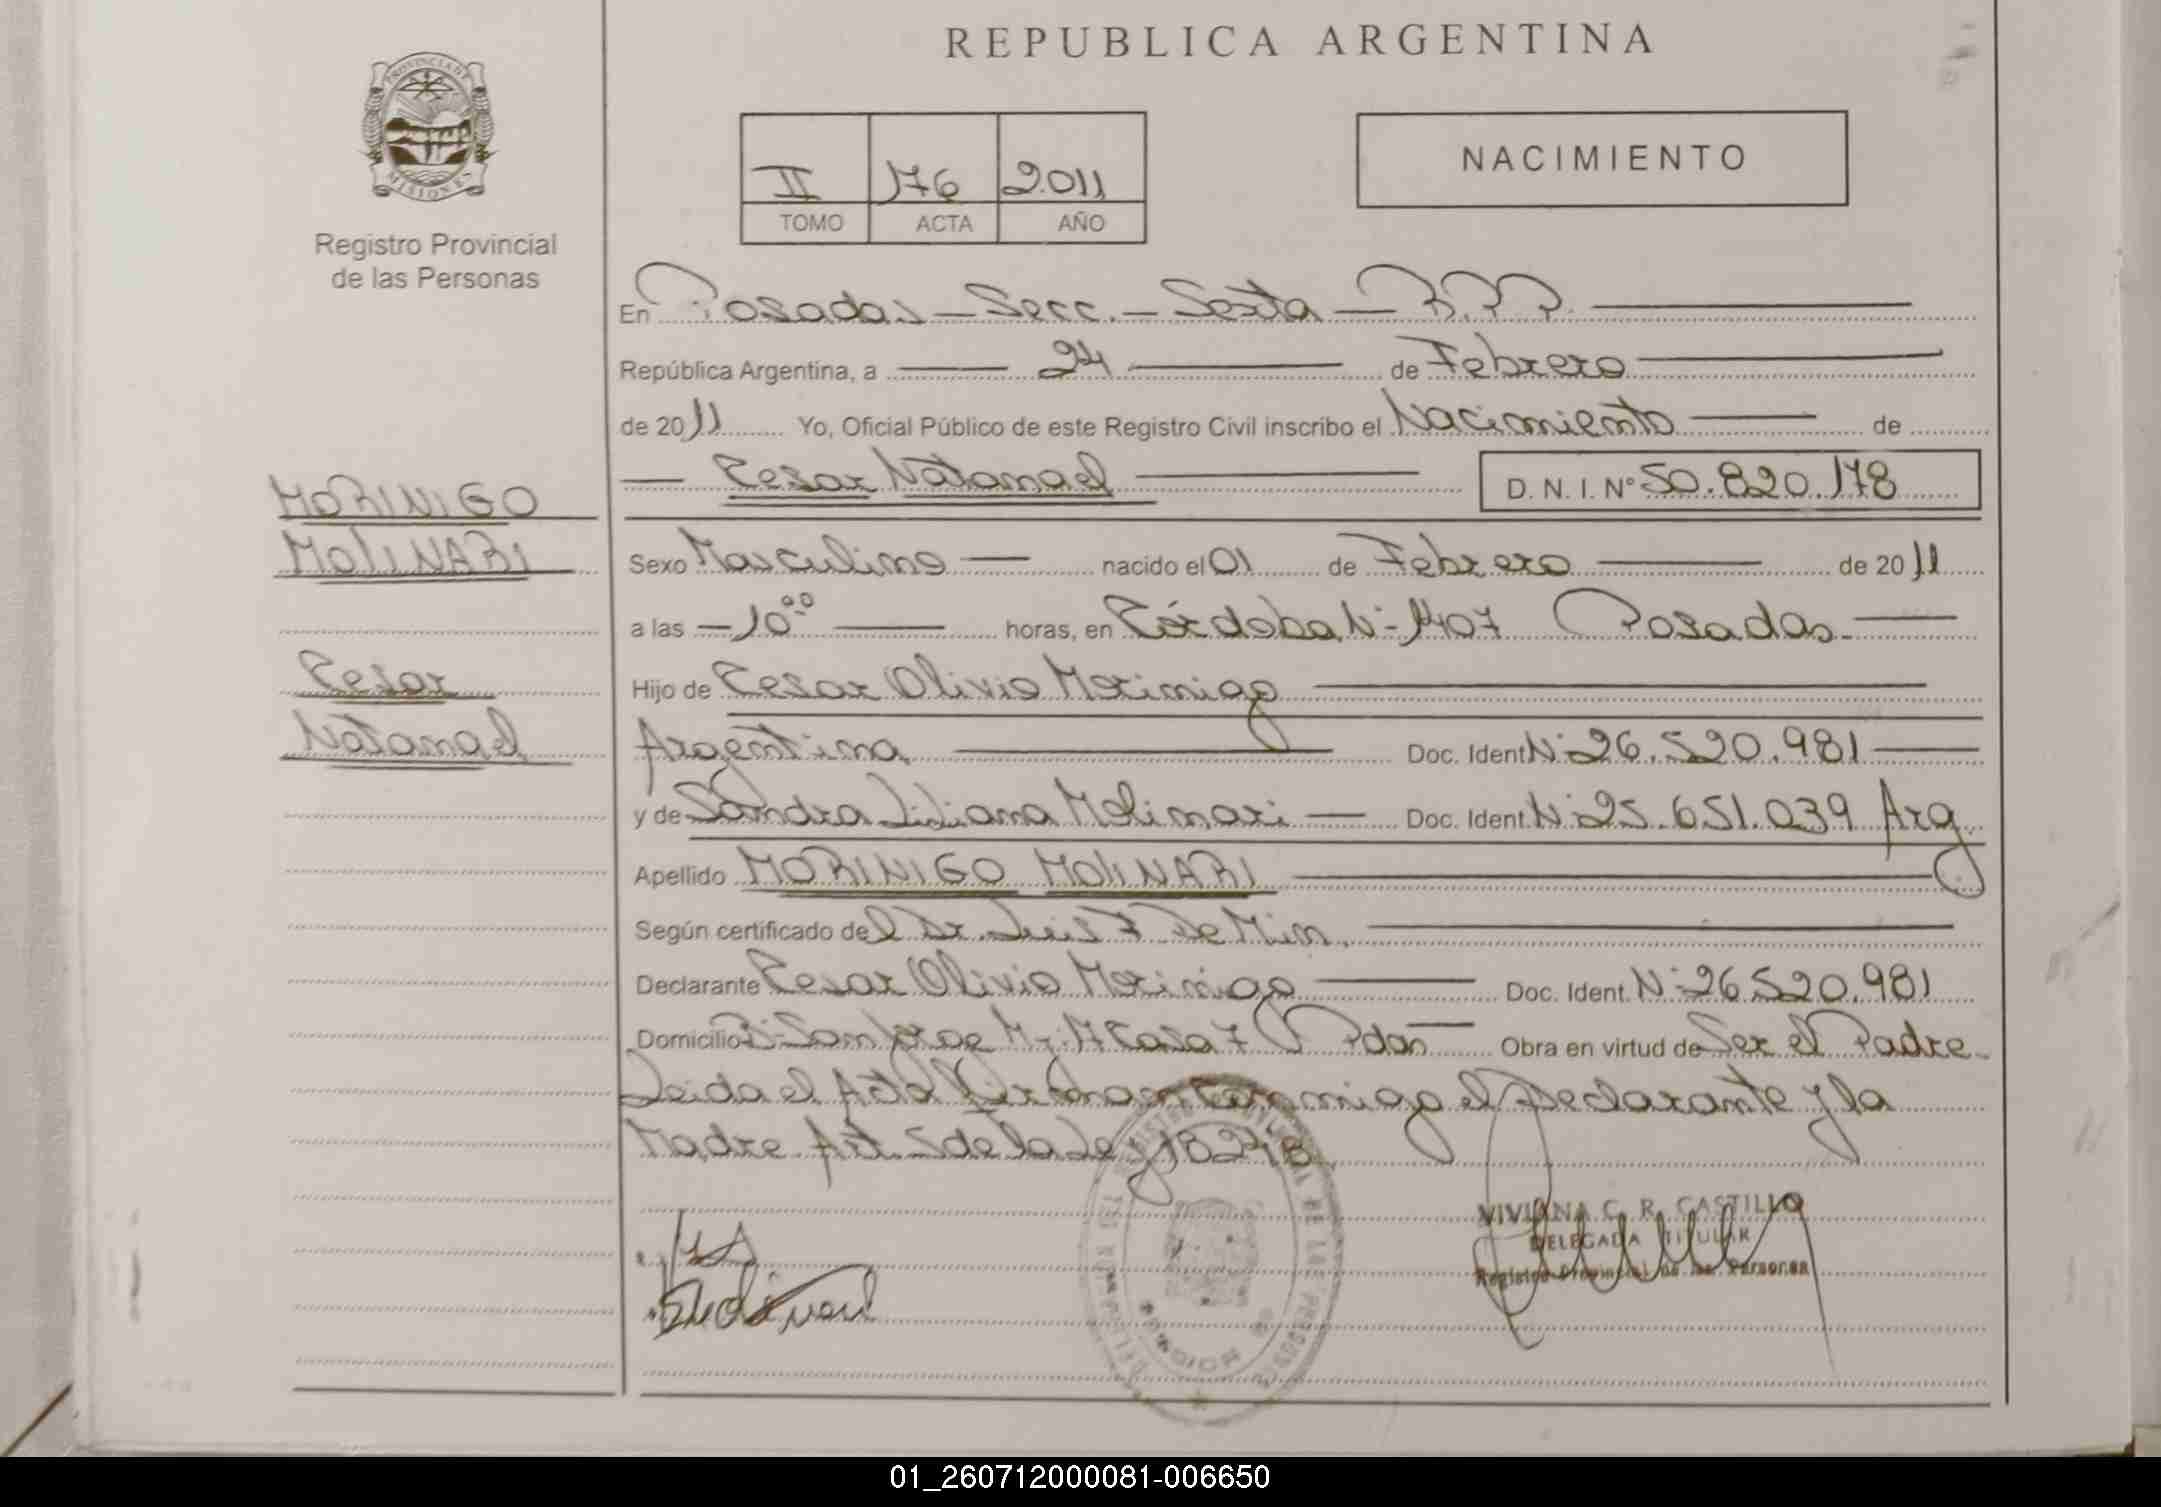 REPUBLICA ARGENTINA
PROVINCIA DE
MISIONES
Registro Provincial
de las Personas
II 176 2011
TOMO ACTA AÑO
NACIMIENTO
En Posadas - Secc. - Sexta - R.P.P.
República Argentina, a 24 de Febrero
de 2011 Yo, Oficial Público de este Registro Civil inscribo el Nacimiento de
Cesar Natanael D. N. I. N° 50.820.178
MORINIGO
MOLINARI
Cesar
Natanael
Sexo Masculino nacido el 01 de Febrero de 2011
a las 10°° horas, en Córdoba N- 1407 Posadas
Hijo de Cesar Olivio Morinigo
Argentina Doc. Ident N- 26.520.981
y de Sandra Liliana Molinari Doc. Ident. N- 25.651.039 Arg.
Apellido MORINIGO MOLINARI
Según certificado del Dr. Luis F De Min.
Declarante Cesar Olivio Morinigo Doc. Ident. N- 26.520.981
Domicilio B- San Jorge Casa 7 Pdas Obra en virtud de Ser el Padre
Leida el Acta conmigo el Declarante y la
Madre Art. 5 de la Ley 18248
VIVIANA C. R. CASTILLO
DELEGADA TITULAR
Registro Provincial de las Personas
01_260712000081-006650